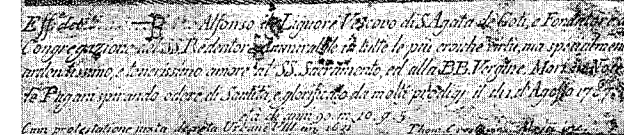 Alfonso de Liguore Vescovo di S. Agata de Goti, e Fondatore d
Congregazione del SS. Redentore ammirabile in tutte le più eroiche virtù, ma specialmen
ardentissimo, e tenerissimo amore al SS. Sacramento, ed alla BB. Vergine. Morì in Noce
de Pagani spirando odore di Santità, e glorificato da molti prodigj, il dì 1. d'Agosto 1787.
età di anni 90. m. 10. g. 5
Cum protestatione juxta decreta Urbani VIII. an. 1631